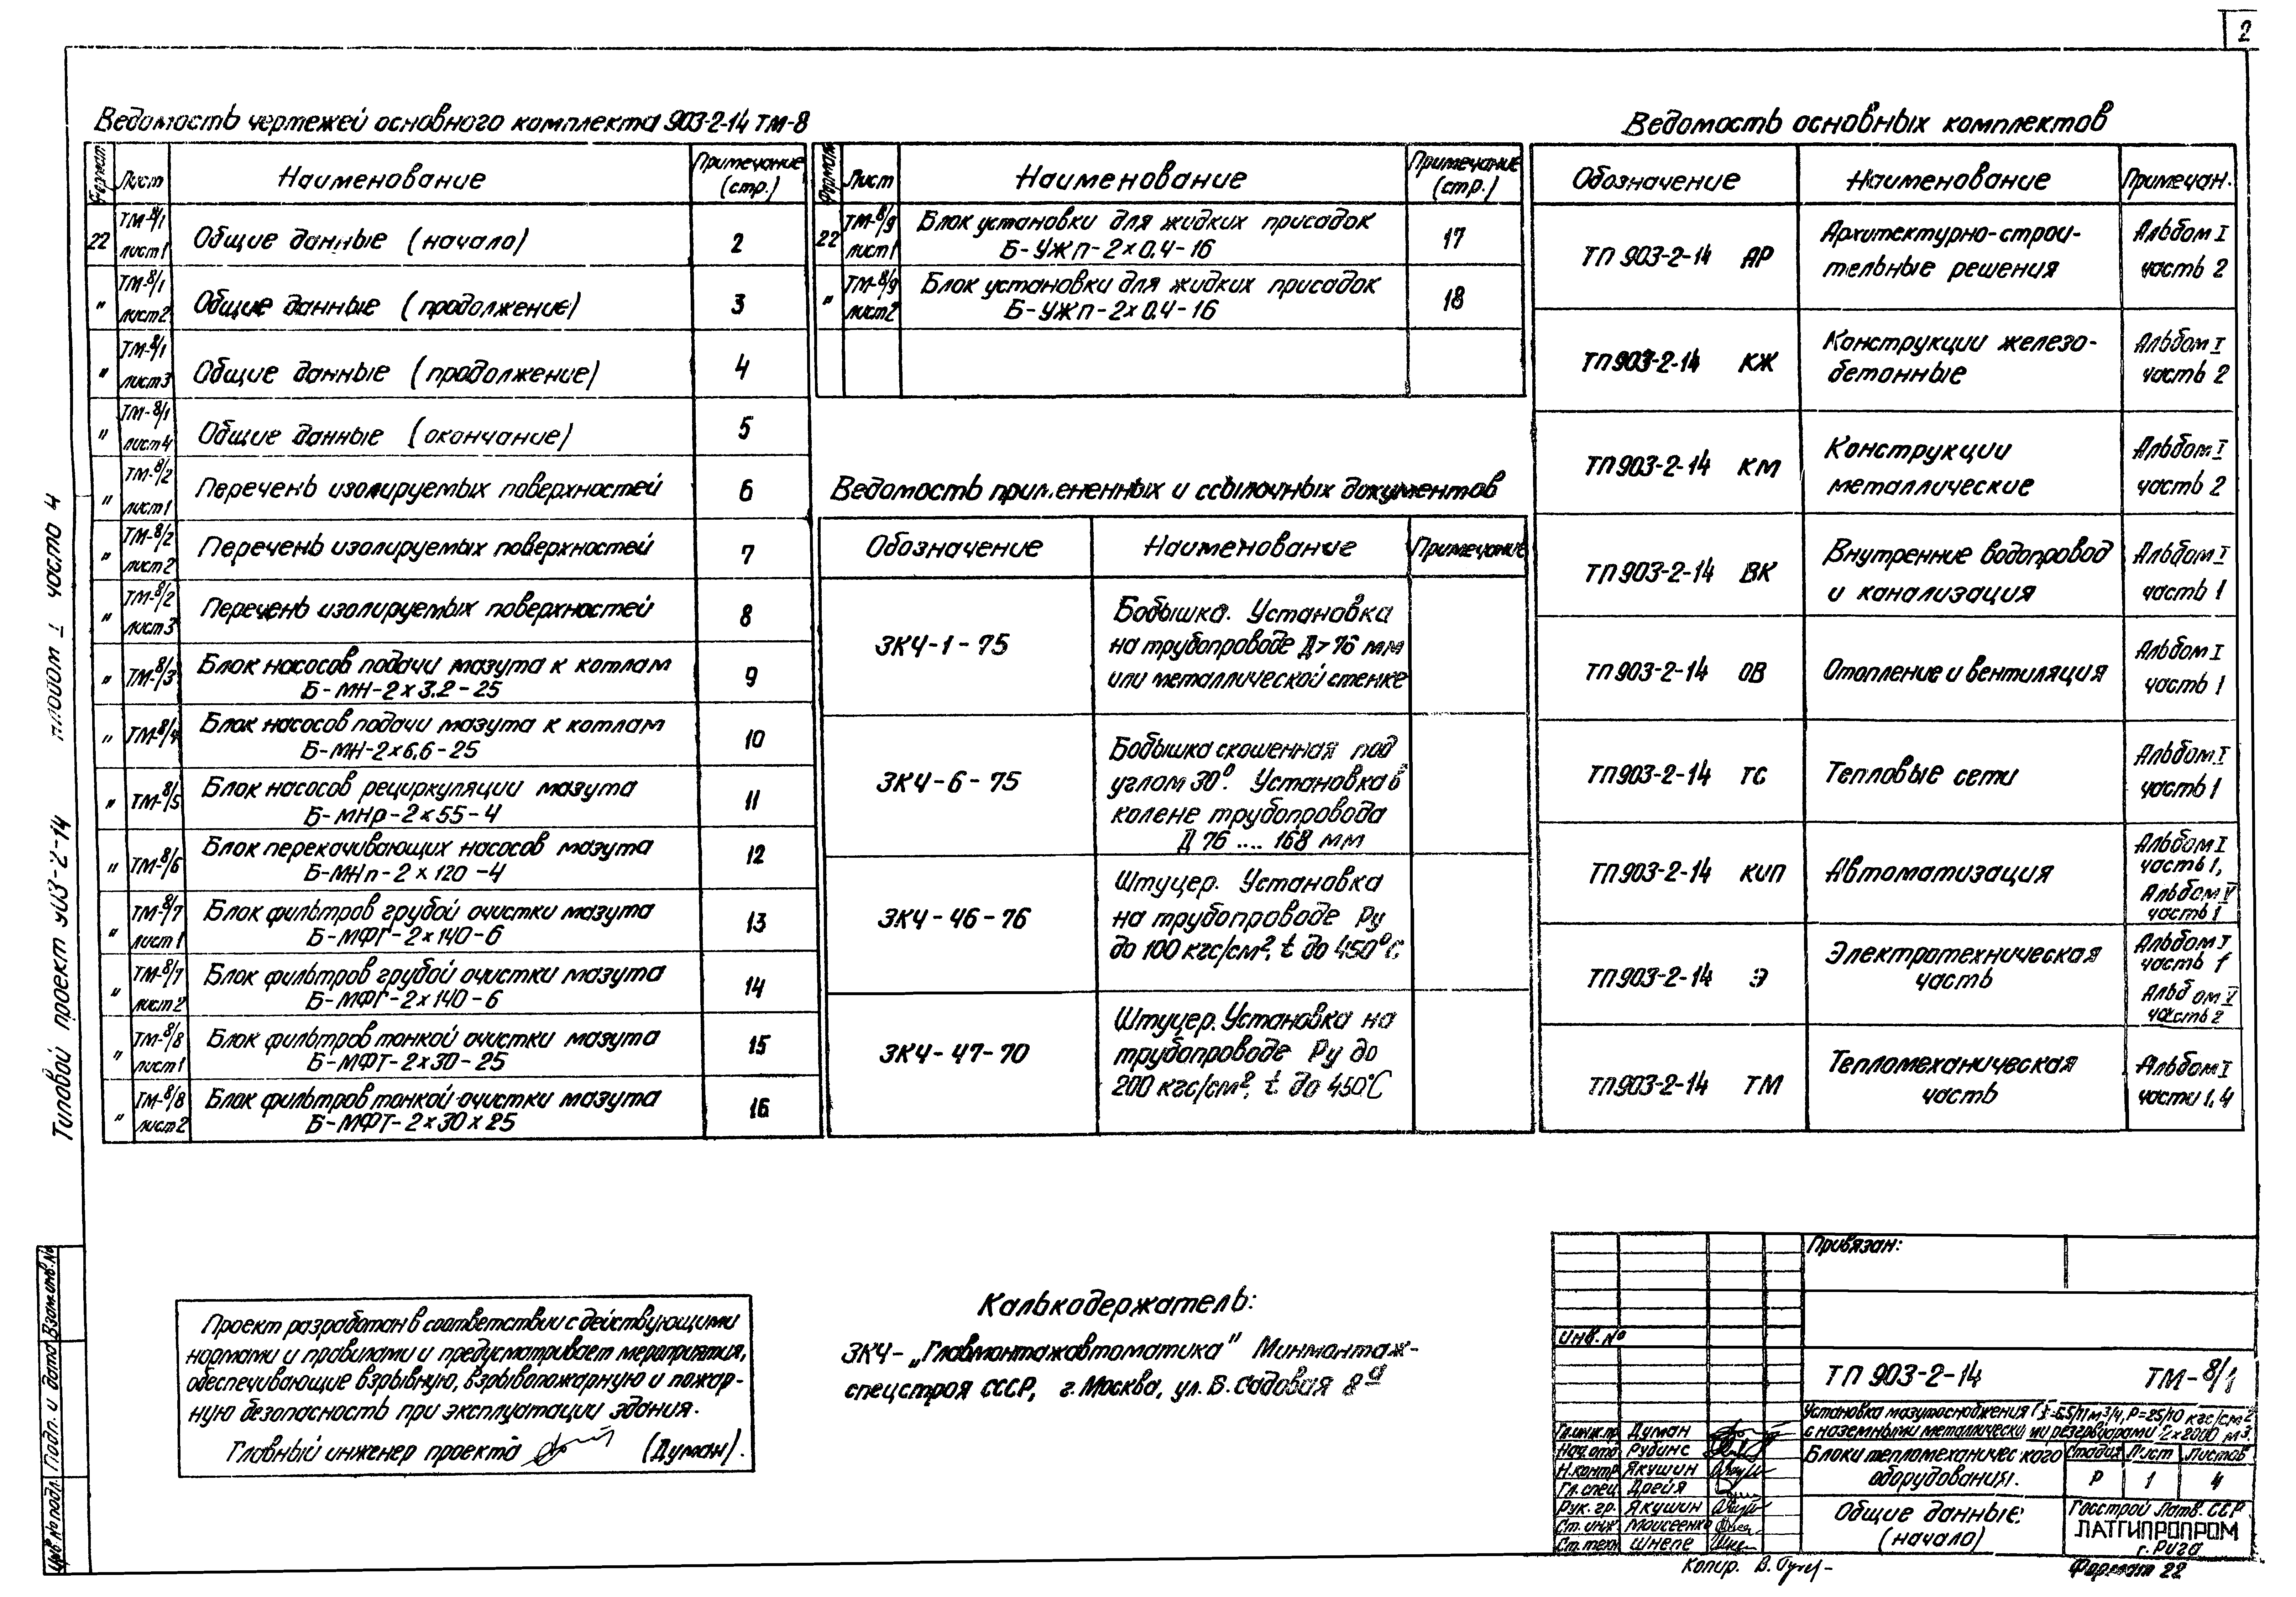 2
Ведомость чертежей основного комплекта 903-2-14 ТМ-8
Формат Лист Наименование Примечание (стр.)
22 ТМ-8/1 лист 1 Общие данные (начало) 2
" ТМ-8/1 лист 2 Общие данные (продолжение) 3
" ТМ-8/1 лист 3 Общие данные (продолжение) 4
" ТМ-8/1 лист 4 Общие данные (окончание) 5
" ТМ-8/2 лист 1 Перечень изолируемых поверхностей 6
" ТМ-8/2 лист 2 Перечень изолируемых поверхностей 7
" ТМ-8/2 лист 3 Перечень изолируемых поверхностей 8
" ТМ-8/3 Блок насосов подачи мазута к котлам Б-МН-2х3.2-25 9
" ТМ-8/4 Блок насосов подачи мазута к котлам Б-МН-2х6,6-25 10
" ТМ-8/5 Блок насосов рециркуляции мазута Б-МНр-2х55-4 11
" ТМ-8/6 Блок перекачивающих насосов мазута Б-МНп-2х120-4 12
" ТМ-8/7 лист 1 Блок фильтров грубой очистки мазута Б-МФГ-2х140-6 13
" ТМ-8/7 лист 2 Блок фильтров грубой очистки мазута Б-МФГ-2х140-6 14
" ТМ-8/8 лист 1 Блок фильтров тонкой очистки мазута Б-МФТ-2х30-25 15
" ТМ-8/8 лист 2 Блок фильтров тонкой очистки мазута Б-МФТ-2х30х25 16
Формат Лист Наименование Примечание (стр.)
22 ТМ-8/9 лист 1 Блок установки для жидких присадок Б-УЖп-2х0.4-16 17
" ТМ-8/9 лист 2 Блок установки для жидких присадок Б-УЖп-2х0.4-16 18
Ведомость примененных и ссылочных документов
Обозначение Наименование Примечание
ЗКЧ-1-75 Бобышка. Установка
на трубопроводе Д>76 мм
или металлической стенке
ЗКЧ-6-75 Бобышка скошенная под
углом 30°. Установка в
колене трубопровода
Д 76 .... 168 мм
ЗКЧ-46-76 Штуцер. Установка
на трубопроводе Ру
до 100 кгс/см², t до 450°С.
ЗКЧ-47-70 Штуцер. Установка на
трубопроводе Ру до
200 кгс/см², t до 450°С
Ведомость основных комплектов
Обозначение Наименование Примечан.
ТП 903-2-14 АР Архитектурно-строительные решения Альбом I часть 2
ТП 903-2-14 КЖ Конструкции железобетонные Альбом I часть 2
ТП 903-2-14 КМ Конструкции металлические Альбом I часть 2
ТП 903-2-14 ВК Внутренние водопровод и канализация Альбом I часть 1
ТП 903-2-14 ОВ Отопление и вентиляция Альбом I часть 1
ТП 903-2-14 ТС Тепловые сети Альбом I часть 1
ТП 903-2-14 КИП Автоматизация Альбом I часть 1, Альбом V часть 1
ТП 903-2-14 Э Электротехническая часть Альбом I часть 1 Альбом V часть 2
ТП 903-2-14 ТМ Тепломеханическая часть Альбом I части 1,4
Типовой проект 903-2-14 альбом I часть 4
Взам.инв.№
Подп. и дата
Инв.№ подл.
Проект разработан в соответствии с действующими
нормами и правилами и предусматривает мероприятия,
обеспечивающие взрывную, взрывопожарную и пожар-
ную безопасность при эксплуатации здания.
Главный инженер проекта (Думан).
Калькодержатель:
ЗКЧ-„Главмонтажавтоматика" Минмонтаж-
спецстроя СССР, г. Москва, ул. Б. Садовая 8а
Привязан:
инв. №
ТП 903-2-14 ТМ-8/1
Установка мазутоснабжения Q=6,5/11 м³/ч, Р=25/10 кгс/см²
с наземными металлическими резервуарами 2х2000 м³.
Гл.инж.пр Думан
Нач.отд Рудинс
Н.контр Якушин
Гл.спец Дрейя
Рук.гр. Якушин
Ст.инж. Моисеенко
Ст.техн Шнепе
Блоки тепломеханического оборудования.
Стадия Лист Листов
Р 1 4
Общие данные (начало)
Госстрой Латв. ССР
ЛАТГИПРОПРОМ
г. Рига
Копир.
Формат 22